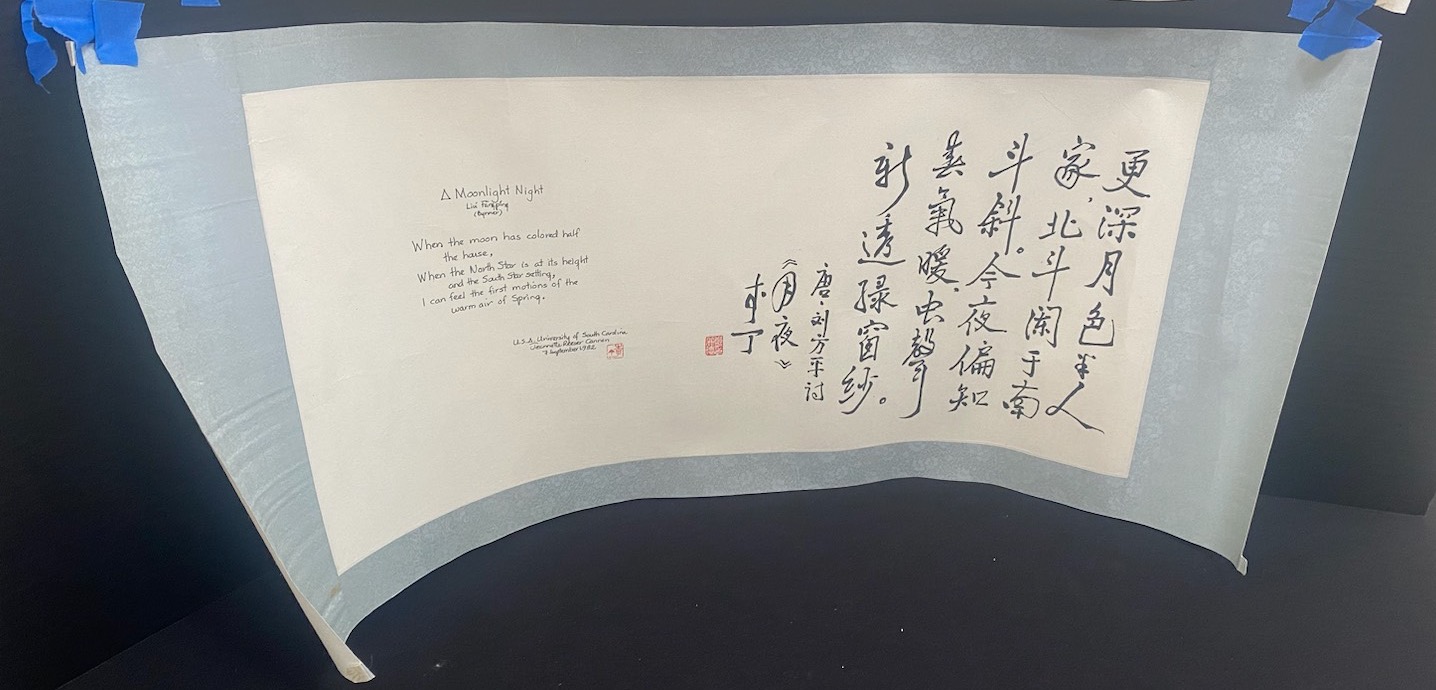 更深月色半人
家，北斗阑干南
斗斜。今夜偏知
春氣暖，虫聲
新透绿窗纱。
唐·刘方平诗
《月夜》
A Moonlight Night
Liu Fangping
(Bynner)
When the moon has colored half
the house,
When the North Star is at its height
and the South Star setting,
I can feel the first motions of the
warm air of Spring.
U.S.A. University of South Carolina
Jeannette Reeser Cannon
7 September 1982